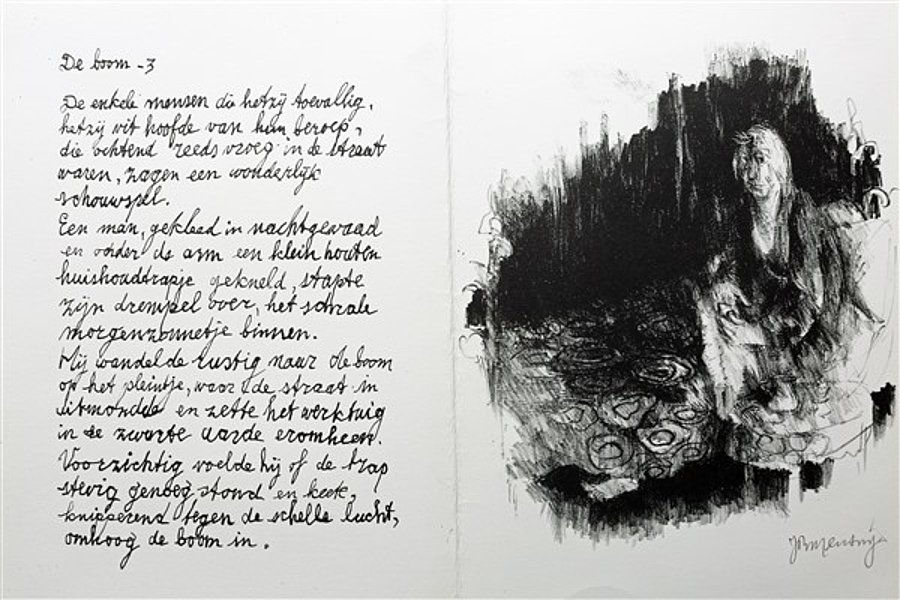 De boom - 3
De enkele mensen die hetzij toevallig,
hetzij uit hoofde van hun beroep,
die ochtend reeds vroeg in de straat
waren, zagen een wonderlijk
schouwspel.
Een man, gekleed in nachtgewaad
en onder de arm een klein houten
huishoudtrapje gekneld, stapte
zijn drempel over, het schrale
morgenzonnetje binnen.
Hij wandelde rustig naar de boom
op het pleintje, waar de straat in
uitmondde en zette het werktuig
in de zwarte aarde eromheen.
Voorzichtig voelde hij of de trap
stevig genoeg stond en keek,
knipperend tegen de schelle lucht,
omhoog de boom in.